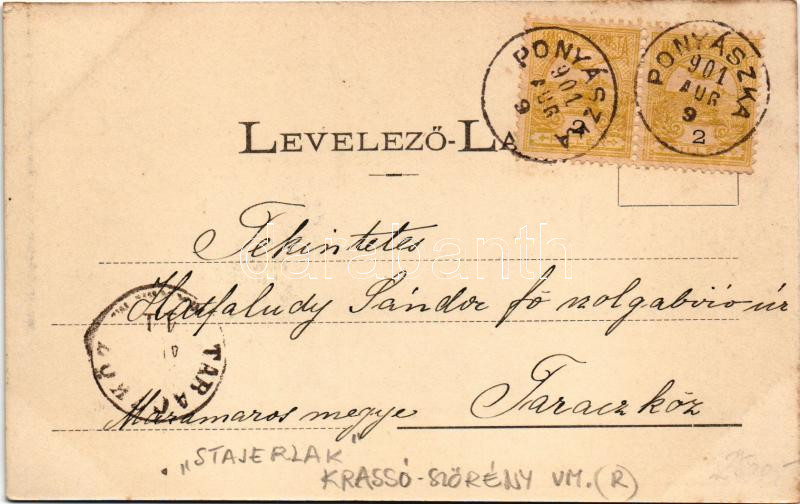 PONYÁSZKA
901
AUG
9
2
PONYÁSZKA
901
AUG
9
2
LEVELEZŐ-LA
Tekintetes
darabanth
Sándor fő szolgabiró úr
TARACZKÖZ
Máramaros megye Taraczköz
"STAJERLAK"
KRASSÓ-SZÖRÉNY VM. (R)